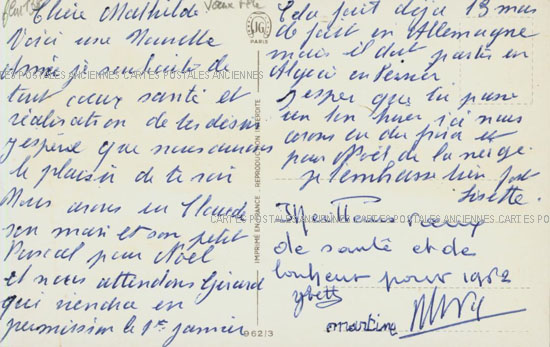 Chère Mathilde
Voici une Nouvelle
Année je souhaite de
tout coeur santé et
réalisation de tes désirs
j'espère que nous aurons
le plaisir de te voir
Nous avons eu Claude
son mari et son petit
Pascal pour Noël
et nous attendons Gérard
qui viendra en
permission le 1er janvier
Cela fait déjà 13 mois
de fait en Allemagne
mais il doit partir en
Algérie en Février
J'espère que tu passe
un bon hiver ici nous
avons eu du froid et
pour Noël de la neige.
je t'embrasse bien fort
Lisette.
de santé et de
bonheur pour 1962
Yvette
martine
Voeux fête
JG
PARIS
IMPRIMÉ EN FRANCE - REPRODUCTION INTERDITE
962/3
CARTES POSTALES ANCIENNES CARTES POSTALES ANCIENNES